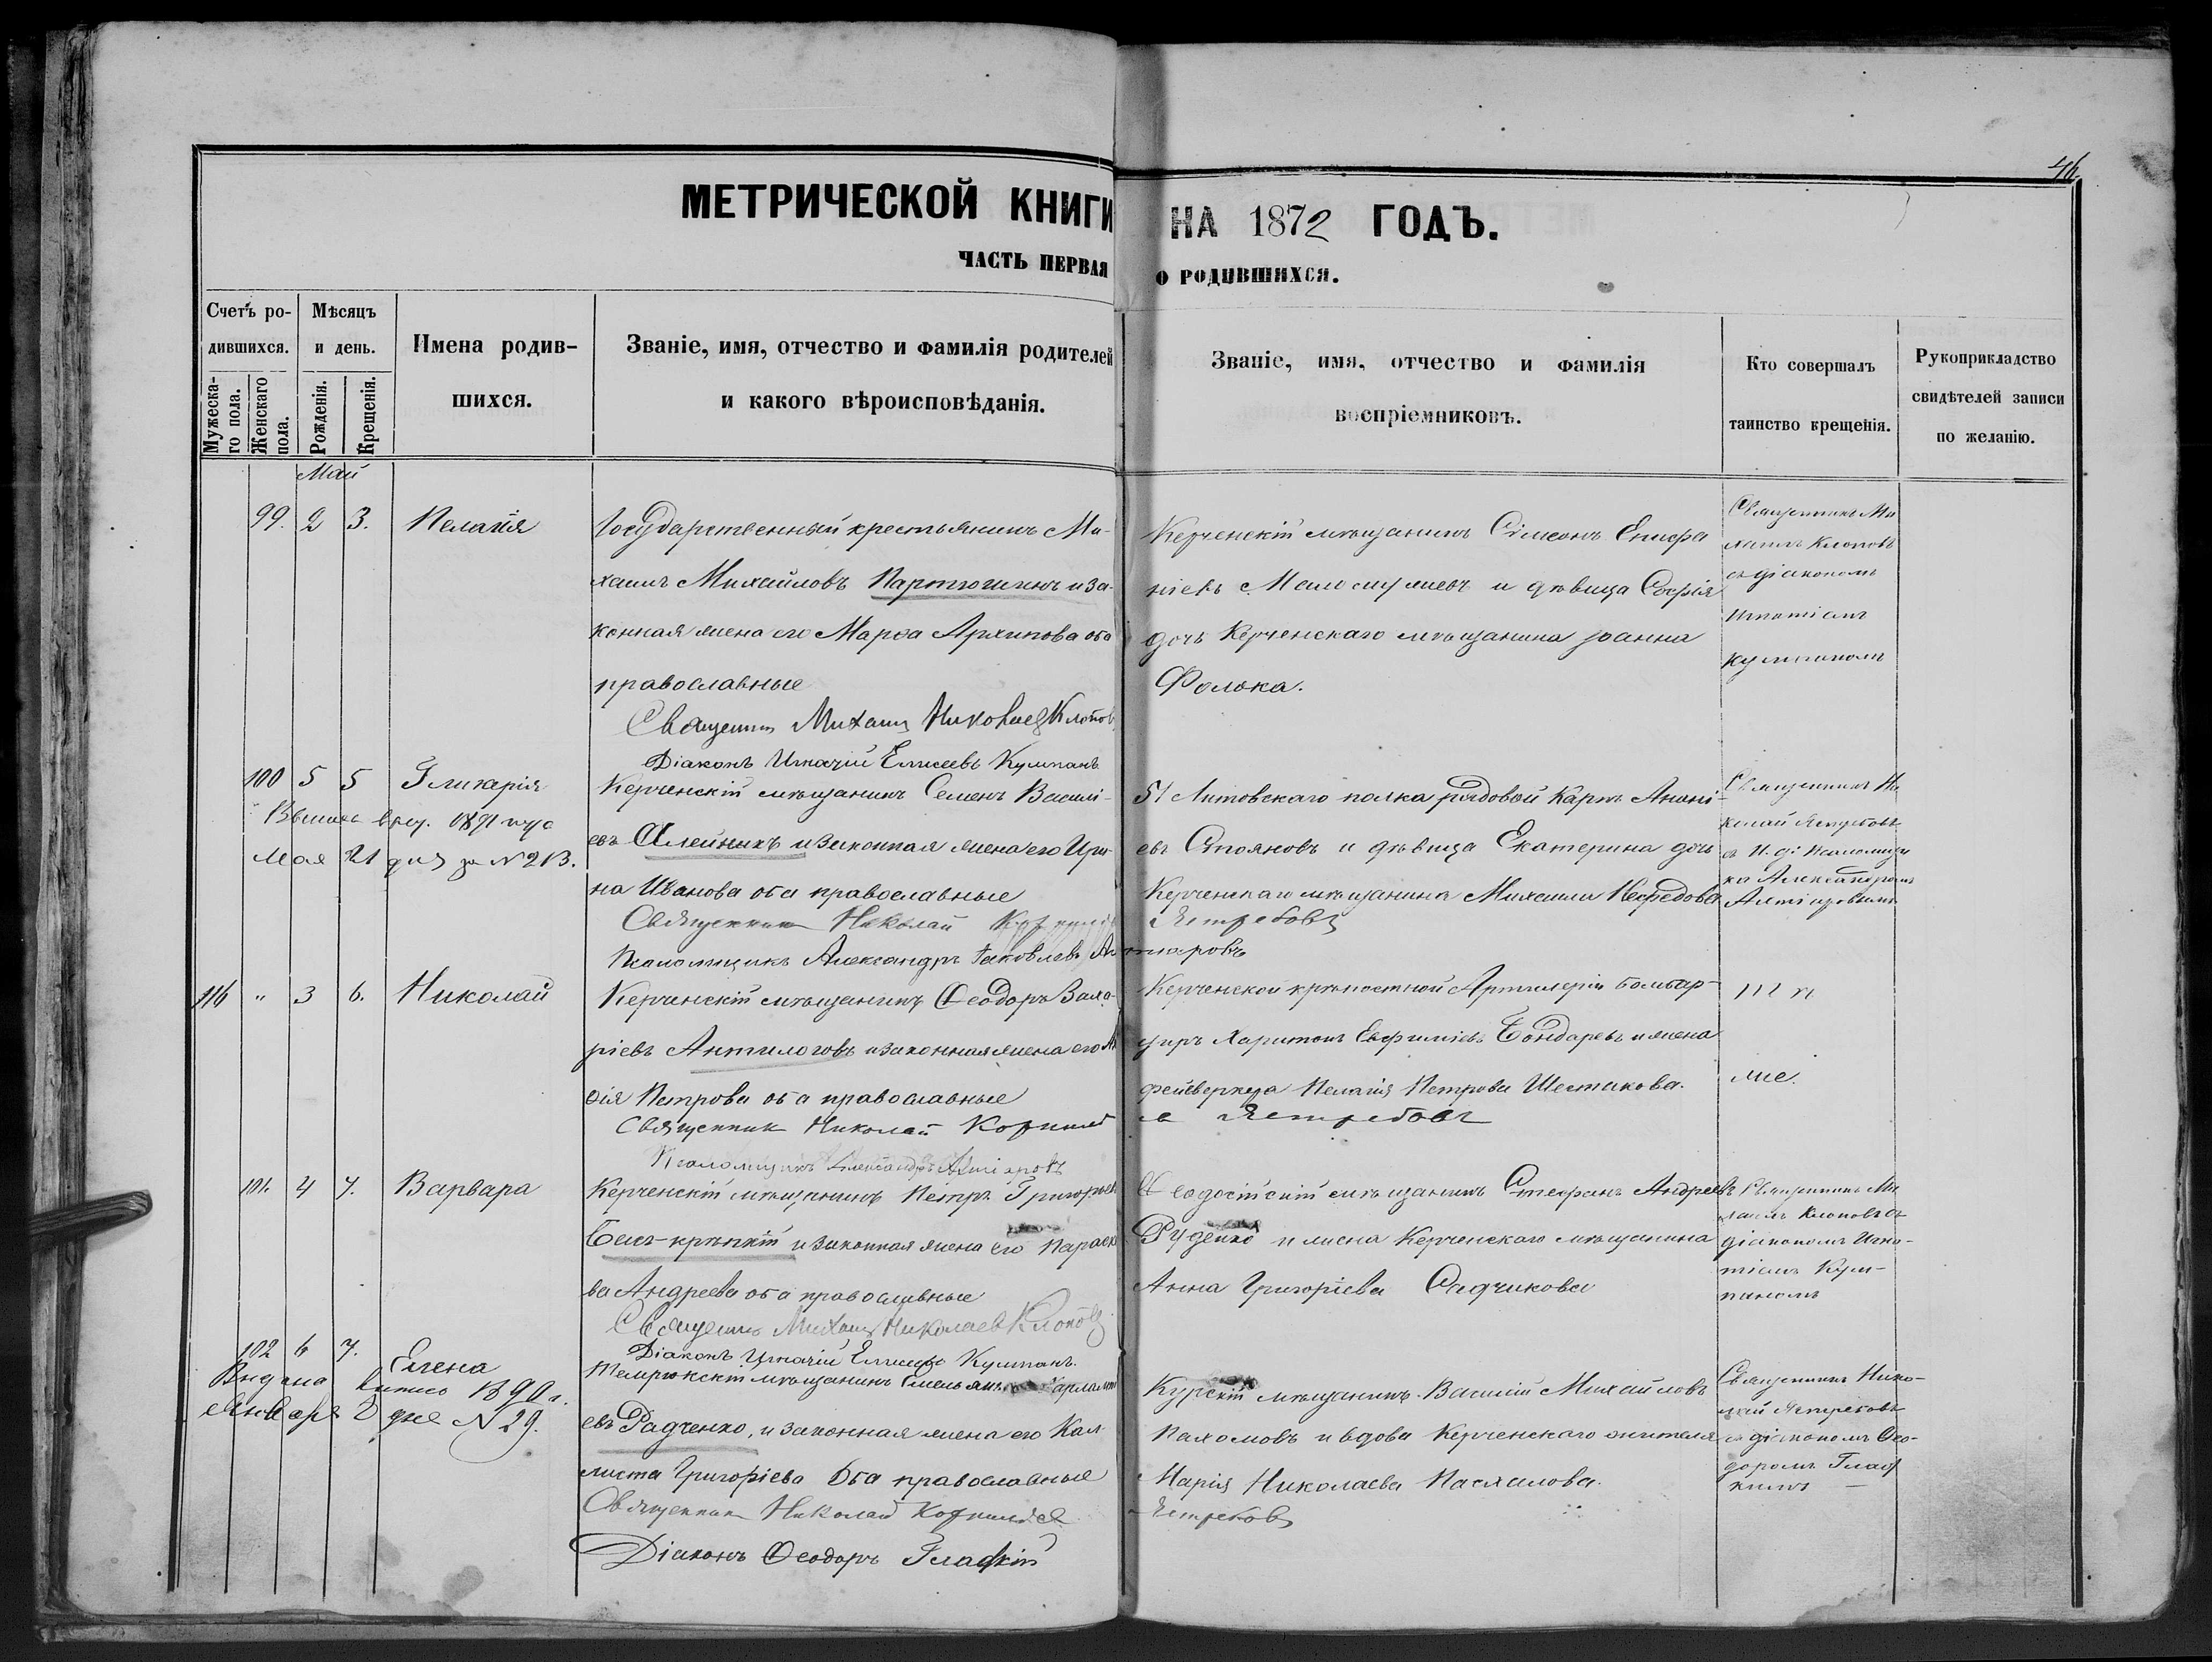 46
МЕТРИЧЕСКОЙ КНИГИ НА 1872 ГОДЪ.
ЧАСТЬ ПЕРВАЯ О РОДИВШИХСЯ.
Счетъ ро-
дившихся.
Мужеска-
го пола.
Женскаго
пола.
Мѣсяцъ
и день.
Рожденія.
Крещенія.
Имена родив-
шихся.
Званіе, имя, отчество и фамилія родителей
и какого вѣроисповѣданія.
Званіе, имя, отчество и фамилія
воспріемниковъ.
Кто совершалъ
таинство крещенія.
Рукоприкладство
свидѣтелей записи
по желанію.
Май
99. 2 3. Пелагія
Государственный крестьянинъ Ми-
хаилъ Михайловъ Партюгинъ и за-
конная жена его Марѳа Архипова оба
православные
Священникъ Михаилъ Николаевъ Клоповъ
Діаконъ Игнатій Елисеевъ Кумпанъ
Керченскій мѣщанинъ Сімеонъ Епифа
ніевъ и дѣвица Софія
дочь Керченскаго мѣщанина Іоанна
Фолока.
Священникъ Ми
хаилъ Клоповъ
съ діакономъ
Игнатіемъ
Кумпаномъ
100 5 5 Гликерія
1891 года
Мая 21 дня за N 213.
Керченскій мѣщанинъ Семенъ Василі-
евъ Алейникъ и законная жена его Ири-
на Иванова оба православные
Священникъ Николай Ястребовъ
Псаломщикъ Александръ Іаковлевъ
51 Литовскаго полка рядовой Карпъ Анані-
евъ Стояновъ и дѣвица Екатерина дочь
Керченскаго мѣщанина Михаила Нефедова
Священникъ Ни
колай Ястребовъ
съ И. д. Псаломщи
ка Александромъ
116 " 3 6. Николай
Керченскій мѣщанинъ Ѳеодоръ Заха-
ріевъ Антилоговъ и законная жена его
Петрова оба православные
Священникъ Николай Корнилье
въ Ястребовъ
Псаломщикъ Александръ
Керченской крѣпостной Артиллеріи бомбар-
диръ Харитонъ Евфиміевъ Бондаревъ и жена
фейерверкера Пелагія Петрова Шестакова.
тѣ
же.
101. 4 7. Варвара
Керченскій мѣщанинъ Петръ Григорьевъ
Бекъ-крѣпкій и законная жена его Параске
ва Андреева оба православные
Священникъ Михаилъ Николаевъ Клоповъ
Діаконъ Игнатій Елисеевъ Кумпанъ.
Ѳеодосійскій мѣщанинъ Стефанъ Андреевъ
Руденко и жена Керченскаго мѣщанина
Анна Григоріева Садчикова
Священникъ Ми
хаилъ Клоповъ съ
діакономъ Игна-
тіемъ Кум-
паномъ
102 6 7. Елена
Выдана 1890 г.
Января 2 дня N 29.
Темрюкскій мѣщанинъ Емельянъ Харлампі
евъ Радченко, и законная жена его Кал-
листа Григоріева оба православные
Священникъ Николай Корнильев
Ястребовъ
Діаконъ Ѳеодоръ Гладкій
Курскій мѣщанинъ Василій Михайловъ
Пахомовъ и вдова Керченскаго жителя
Марія Николаева Пасхалова.
Священникъ Нико-
лай Ястребовъ
съ діакономъ Ѳео-
доромъ Глад
кимъ